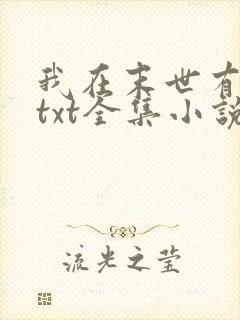 我在末世有
txt全集小說
流光之莹